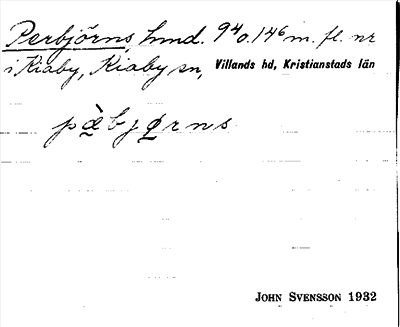 Perbjörns, hmd. 94 o. 146 m. fl. nr
i Kiaby, Kiaby sn, Villands hd, Kristianstads län
pæ̀bjørns
JOHN SVENSSON 1932